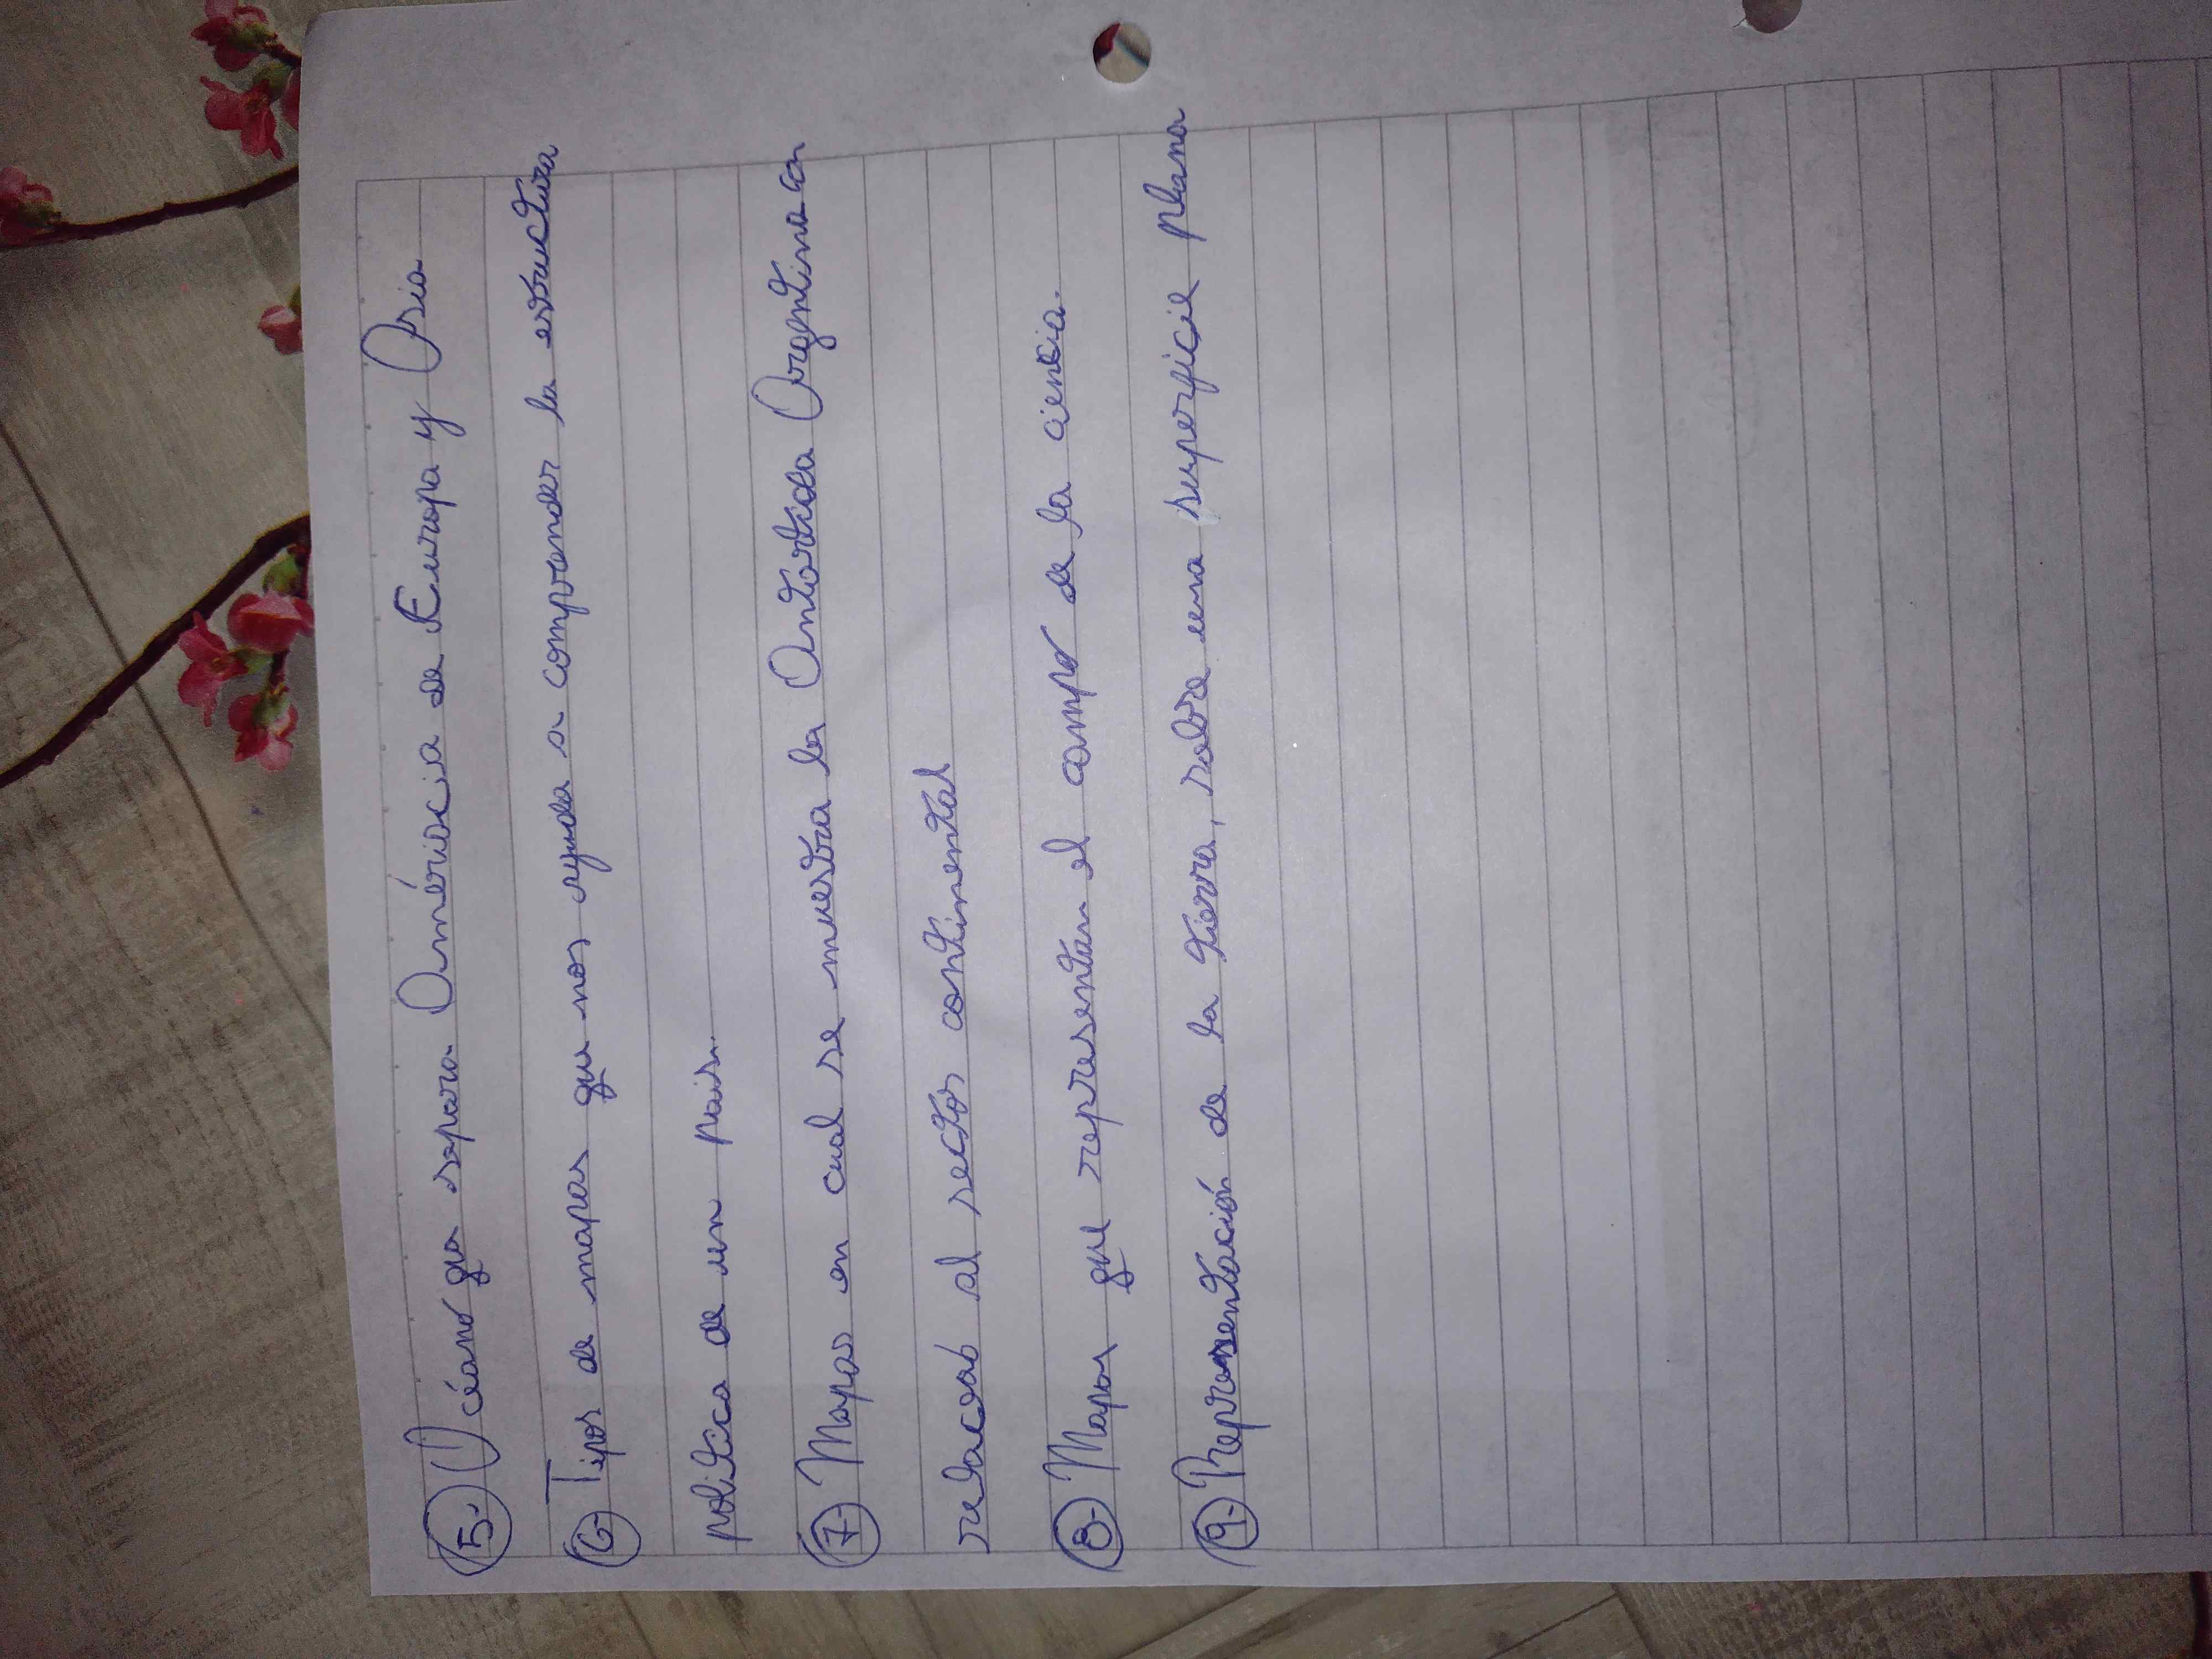 5- Océano que separa América de Europa y Asia
6- Tipos de mapas que nos ayuda a comprender la estructura
política de un país.
7- Mapas en cual se muestra la Antártida Argentina con
relación al sector continental
8- Mapas que representan el campo de la ciencia.
9- Representación de la tierra, sobre una superficie plana